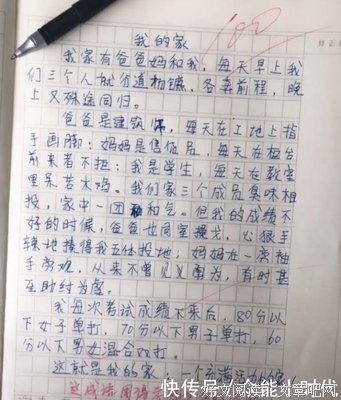 我的家
100
我家有爸爸妈和我，每天早上我
们三个人就分道扬镳，各奔前程，晚
上又殊途同归。
爸爸是建筑师，每天在工地上指
手画脚；妈妈是售货员，每天在柜台
前来者不拒；我是学生，每天在教室
里呆若木鸡。我们家三个成员臭味相
投，家中一团和气。但我的成绩不
好的时候，爸爸也同室操戈，心狠手
辣地揍得我五体投地；妈妈在一旁袖
手旁观，从来不曾见义勇为，有时甚
至助纣为虐。
我每次考试成绩下来后，80分以
下女子单打，70分以下男子单打，60
分以下男女混合双打。
这就是我的家：一个
快传号/众能小时代